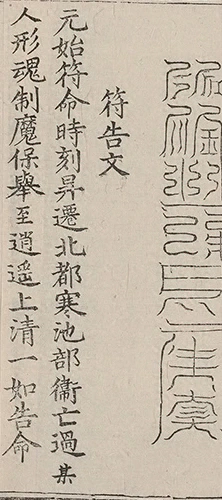 符告文
元始符命時刻昇遷北都寒池部衛亡過某
人形魂制魔保舉至逍遙上清一如告命